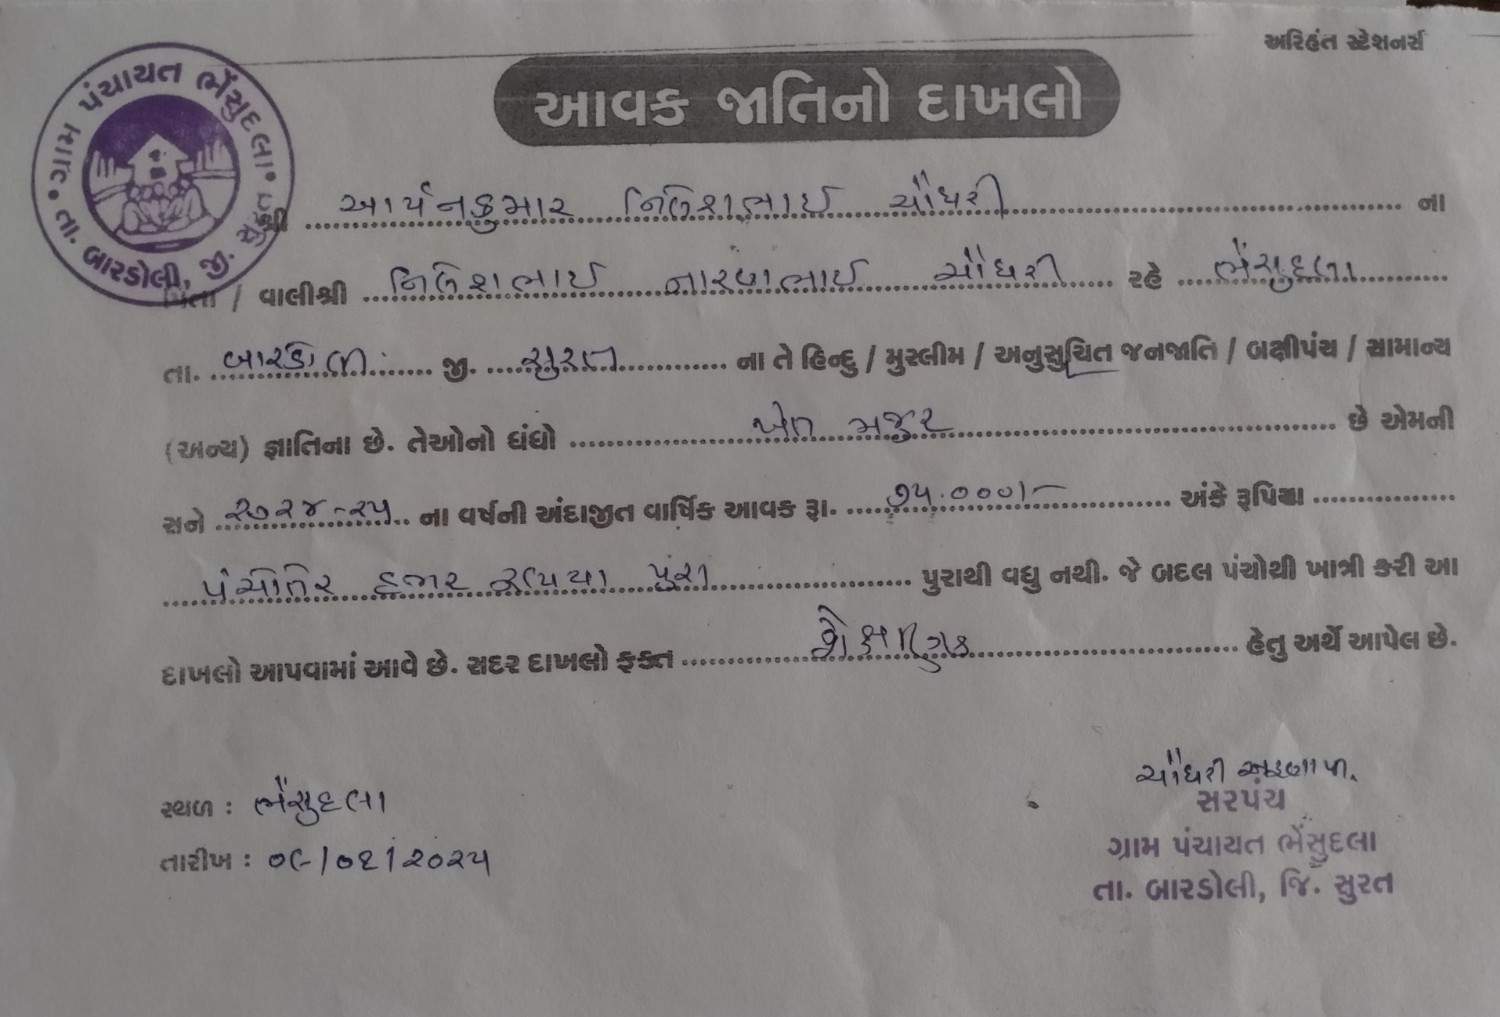 અરિહંત સ્ટેશનર્સ
આવક જાતિનો દાખલો
ગ્રામ પંચાયત ભેંસુદલા
તા. બારડોલી, જી. સુરત
શ્રી આર્યનકુમાર નિલેશભાઈ ચૌધરી ના
પિતા / વાલીશ્રી નિલેશભાઈ નારણભાઈ ચૌધરી રહે ભેંસુદલા
તા. બારડોલી જી. સુરત ના તે હિન્દુ / મુસ્લીમ / અનુસુચિત જનજાતિ / બક્ષીપંચ / સામાન્ય
(અન્ય) જ્ઞાતિના છે. તેઓનો ધંધો ખેત મજુર છે એમની
સને ૨૦૨૪-૨૫ ના વર્ષની અંદાજીત વાર્ષિક આવક રૂા. ૭૫.૦૦૦/- અંકે રૂપિયા
પંચોતેર હજાર રૂપિયા પુરા પુરાથી વધુ નથી. જે બદલ પંચોથી ખાત્રી કરી આ
દાખલો આપવામાં આવે છે. સદર દાખલો ફક્ત શૈક્ષણિક હેતુ અર્થે આપેલ છે.
સ્થળ : ભેંસુદલા
તારીખ : ૦૯/૦૬/૨૦૨૫
ચૌધરી
સરપંચ
ગ્રામ પંચાયત ભેંસુદલા
તા. બારડોલી, જિ. સુરત